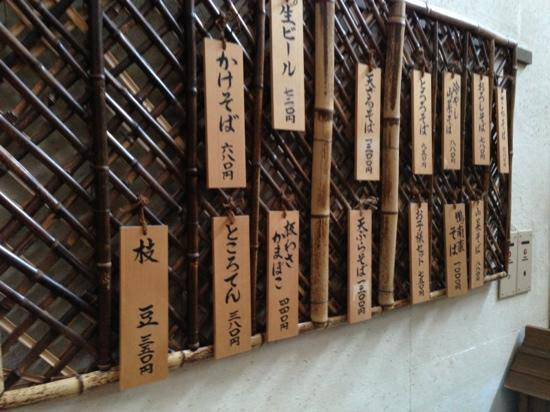 かけそば 六八〇円
生ビール 七二〇円
天ざるそば 一三〇〇円
とろろそば 九五〇円
冷やし山菜そば 八八〇円
おろしそば 七八〇円
枝豆 三五〇円
ところてん 三八〇円
板わさ かまぼこ 四四〇円
天ぷらそば 一三〇〇円
お子様セット 七五〇円
鴨南蛮そば 一〇〇〇円
山菜そば 八八〇円